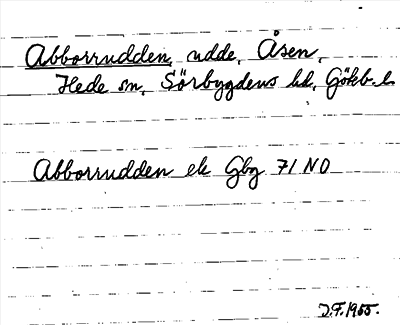 Abborrudden, udde, Åsen,
Hede sn, Sörbygdens hd, Gökb. l.
Abborrudden ek Gbg 71 NO
J.F. 1955.